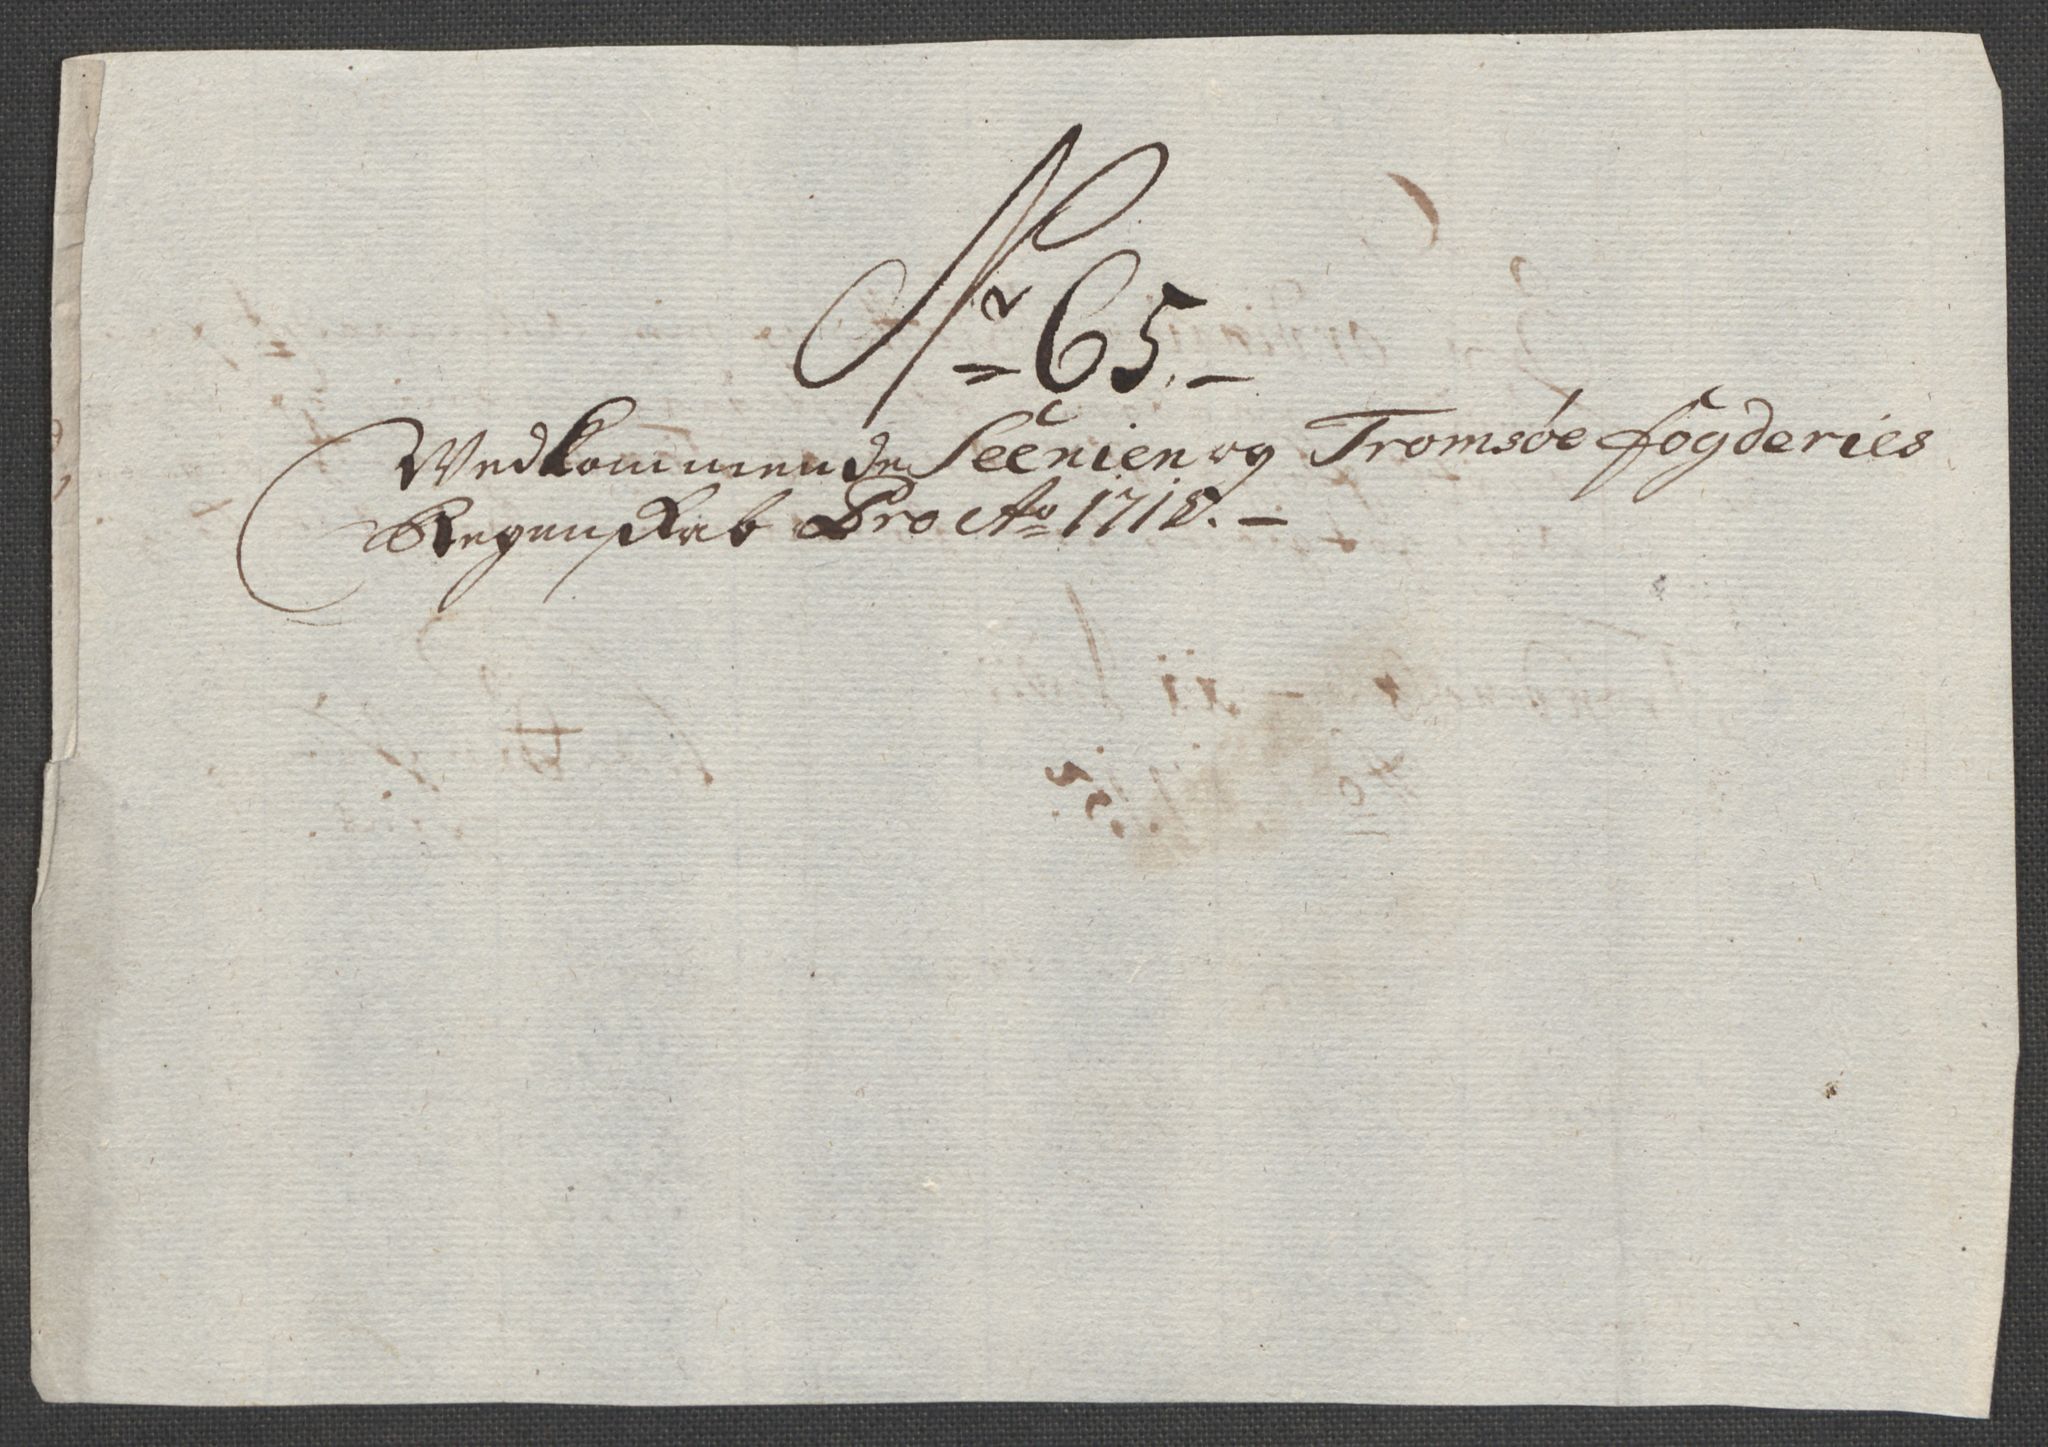 Nr 65.
Vedkommende Seenien og Tromsøe fogderies
Regenskab Pro Ao 1718.